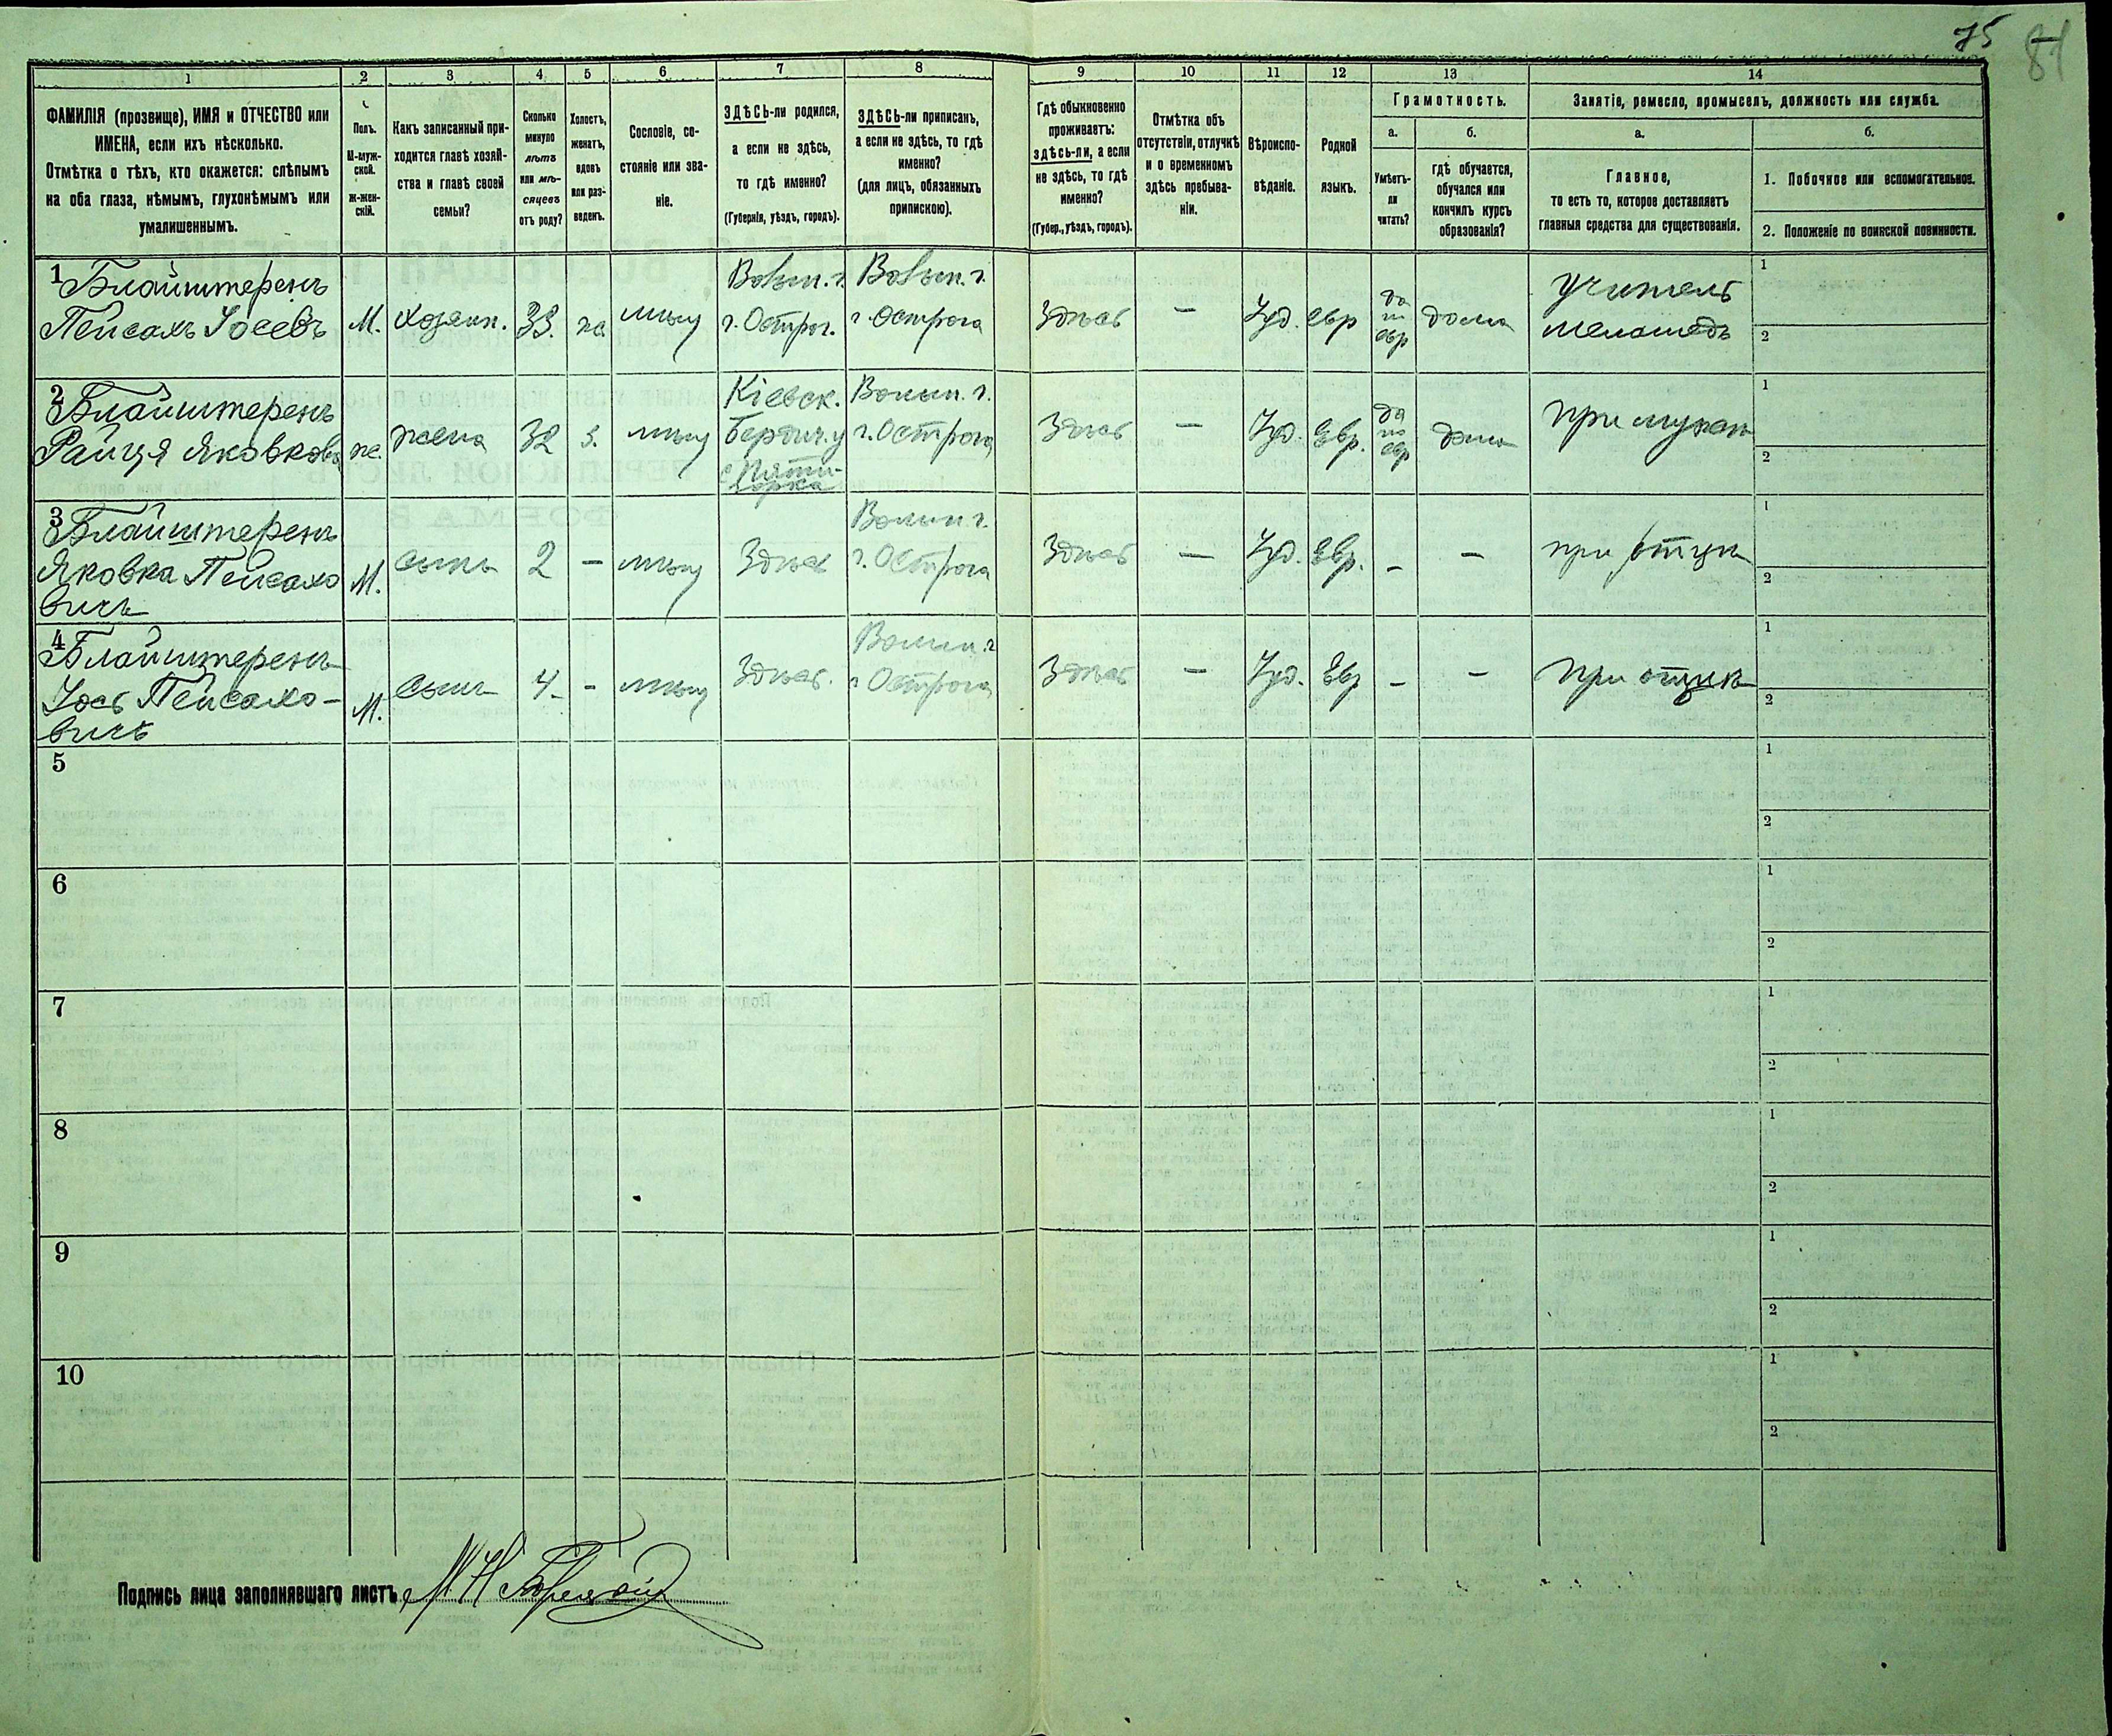 75
81
1 2 3 4 5 6 7 8 9 10 11 12 13 14
ФАМИЛІЯ (прозвище), ИМЯ и ОТЧЕСТВО или
ИМЕНА, если ихъ нѣсколько.
Отмѣтка о тѣхъ, кто окажется: слѣпымъ
на оба глаза, нѣмымъ, глухонѣмымъ или
умалишеннымъ.
Полъ.
М-муж-
ской.
ж-жен-
скій.
Какъ записанный при-
ходится главѣ хозяй-
ства и главѣ своей
семьи?
Сколько
минуло
лѣтъ
или мѣ-
сяцевъ
отъ роду?
Холостъ,
женатъ,
вдовъ
или раз-
веденъ.
Сословіе, со-
стояніе или зва-
ніе.
ЗДѢСЬ-ли родился,
а если не здѣсь,
то гдѣ именно?
(Губернія, уѣздъ, городъ).
ЗДѢСЬ-ли приписанъ,
а если не здѣсь, то гдѣ
именно?
(для лицъ, обязанныхъ
припискою).
Гдѣ обыкновенно
проживаетъ:
здѣсь-ли, а если
не здѣсь, то гдѣ
именно?
(Губер., уѣздъ, городъ).
Отмѣтка объ
отсутствіи, отлучкѣ
и о временномъ
здѣсь пребыва-
ніи.
Вѣроиспо-
вѣданіе.
Родной
языкъ.
Грамотность.
а.
Умѣетъ-
ли
читать?
б.
гдѣ обучается,
обучался или
кончилъ курсъ
образованія?
Занятіе, ремесло, промыселъ, должность или служба.
а.
Главное,
то есть то, которое доставляетъ
главныя средства для существованія.
б.
1. Побочное или вспомогательное.
2. Положеніе по воинской повинности.
1
Блайштеренъ
Пейсахъ Іосевъ
М.
хозяин.
33.
ж
мѣщ
Волын. г.
г. Острог.
Волын. г.
г. Острога
Здѣсь
—
Іуд.
евр
да
по
евр
дома
Учитель
меламедъ
1
2
2
Блайштеренъ
Райця Яковков
ж.
жена
32
з.
мѣщ
Кіевск.
Бердич. у
с Пяти-
горка
Волын. г.
г. Острога
Здѣсь
—
Іуд.
Евр.
да
по
евр
дома
при мужѣ
1
2
3
Блайштеренъ
Яковка Пейсахо
вичъ
М.
сынъ
2
—
мѣщ
Здѣсь
Волын. г.
г. Острога
Здѣсь
—
Іуд.
Евр.
—
—
при отцѣ
1
2
4
Блайштеренъ
Іось Пейсахо-
вичъ
М.
сынъ
4
-
мѣщ
Здѣсь.
Волын. г
г Острога
Здѣсь
—
Іуд.
Евр
—
—
при отцѣ
1
2
5
1
2
6
1
2
7
1
2
8
1
2
9
1
2
10
1
2
Подпись лица заполнявшаго листъ